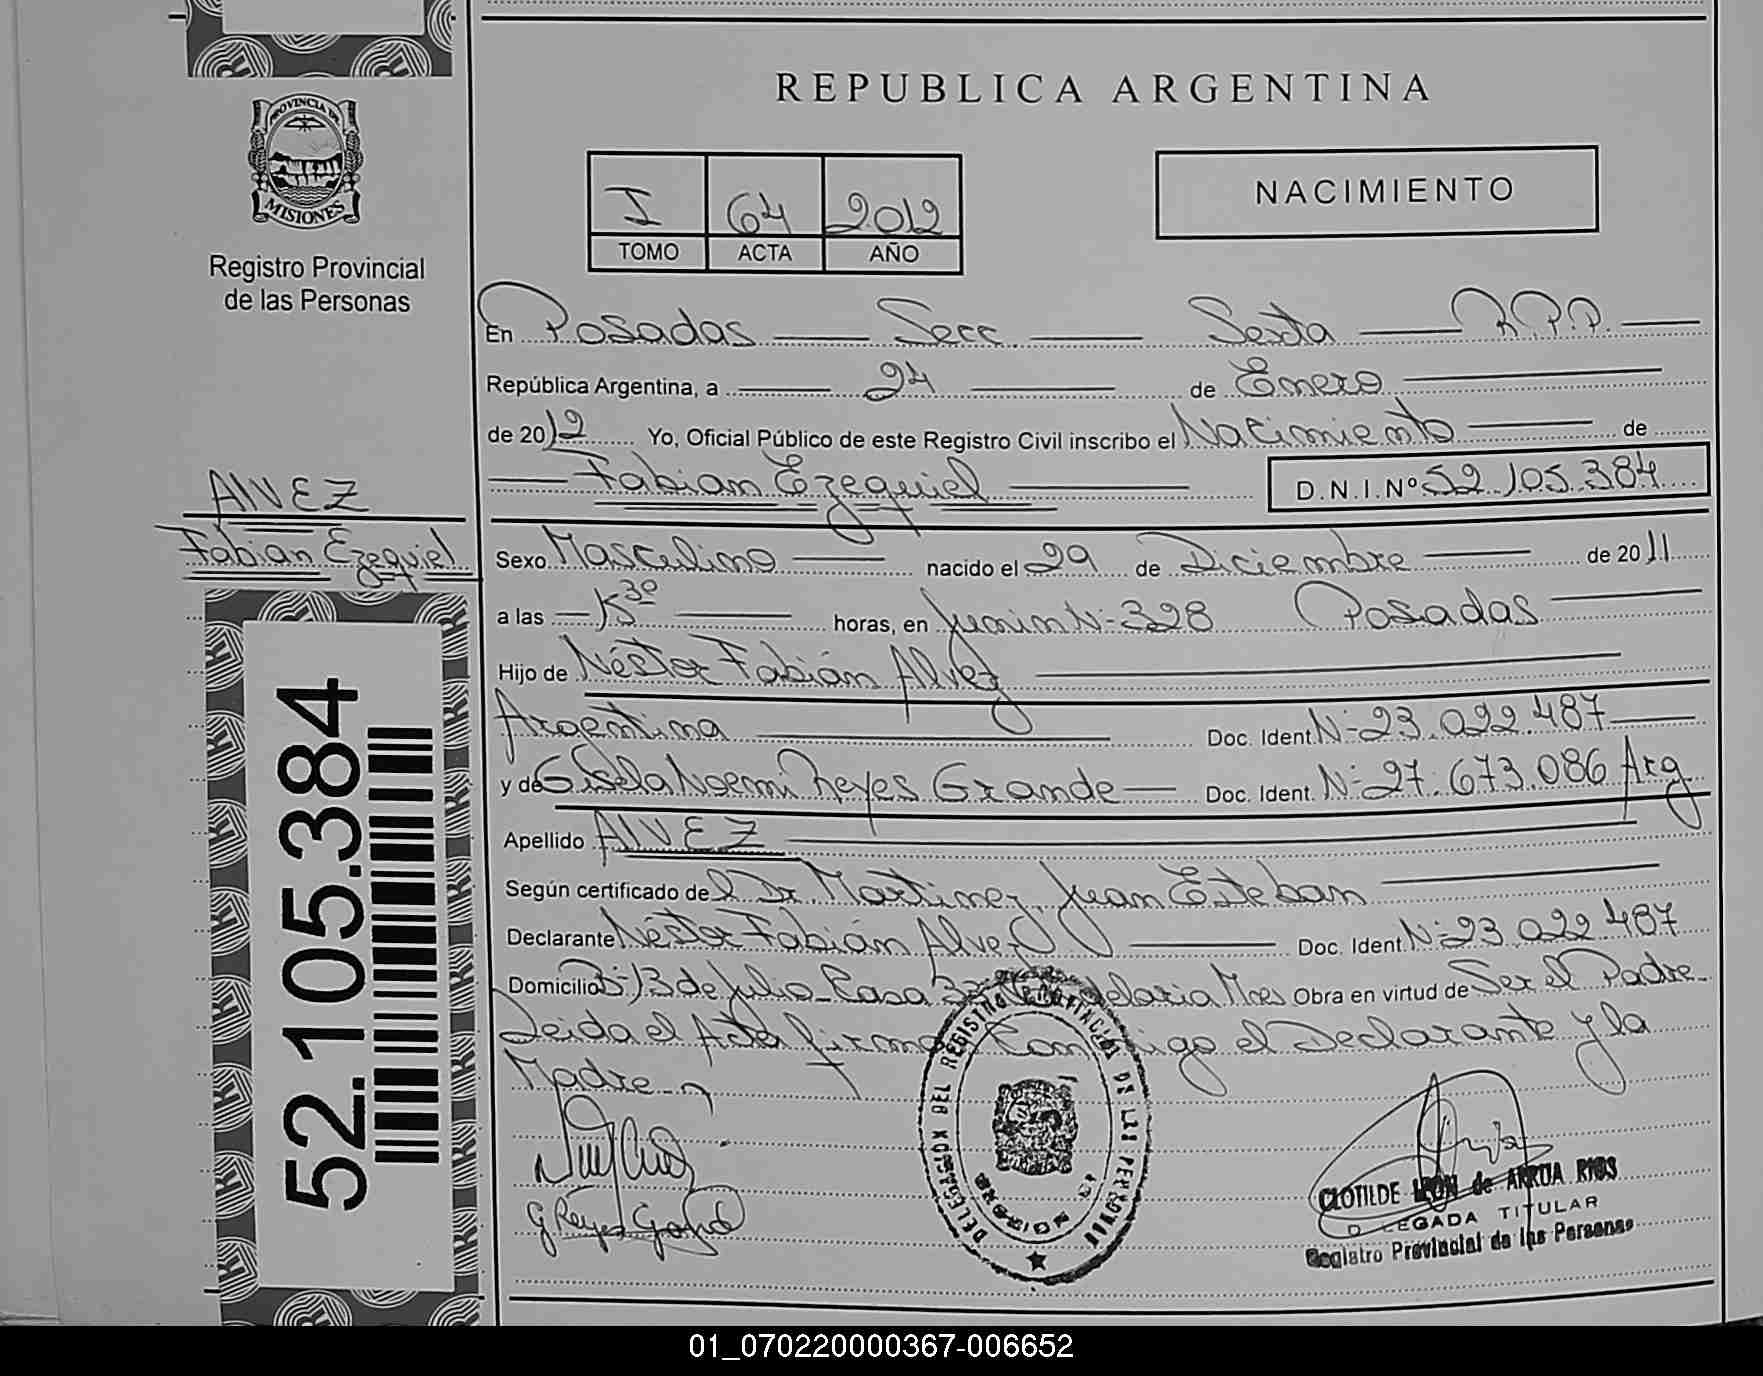 REPUBLICA ARGENTINA
PROVINCIA DE
MISIONES
Registro Provincial
de las Personas
I 64 2012
TOMO ACTA AÑO
NACIMIENTO
En Posadas Secc. Sexta R.P.P.
República Argentina, a 24 de Enero
de 2012 Yo, Oficial Público de este Registro Civil inscribo el Nacimiento de
Fabian Ezequiel D.N.I.Nº 52.105.384
ALVEZ
Fabian Ezequiel
Sexo Masculino nacido el 29 de Diciembre de 2011
a las horas, en Junin Nº 328 Posadas
Hijo de Néstor Fabián Alvez
Argentina Doc. Ident. Nº 23.022.487
y de Gisela Noemi Reyes Grande Doc. Ident. Nº 27.673.086 Arg
Apellido ALVEZ
Según certificado del Dr. Martinez, Juan Esteban
Declarante Néstor Fabián Alvez Doc. Ident. Nº 23.022.487
Domicilio 13 de Julio Casa Mnes Obra en virtud de Ser el Padre
Leida el Acta firma el Declarante y la
Madre
52.105.384
DELEGACION DEL REGISTRO PROVINCIAL DE LAS PERSONAS
MISIONES
G Reyes Grande
CLOTILDE LEON de ARRUA RIOS
DELEGADA TITULAR
Registro Provincial de las Personas
01_070220000367-006652